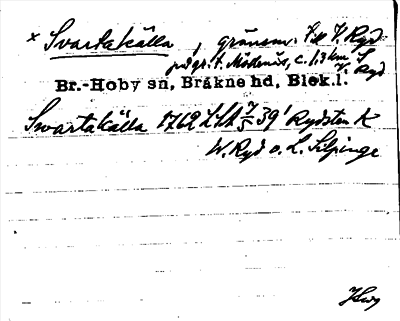 × Svartakälla, gränsm. till V. Ryd
på gr. t. Mödenäs, c. 1,3 km S Ryd
Br.-Hoby sn, Bräkne hd, Blek.l.
Swartakälla 1762 LSA 7/5 39' Rydsten K
W. Ryd o. L. Silpinge